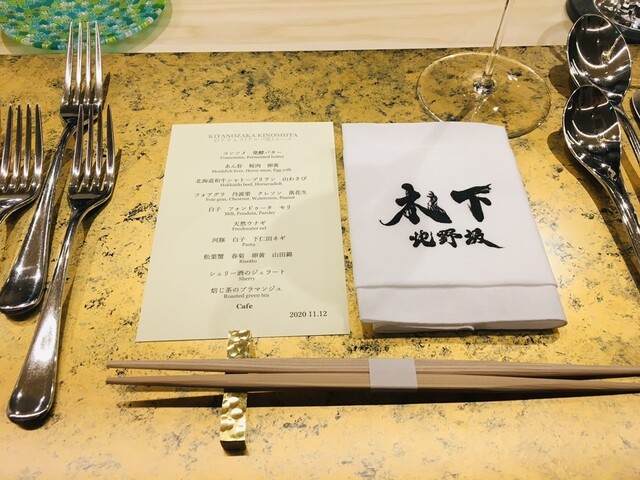 KITANOZAKA KINOSHITA
コンソメ 発酵バター
Consomme, Fermented butter
あん肝 桜肉 卵黄
Monkfish liver, Horse meat, Egg yolk
北海道和牛シャトーブリアン 山わさび
Hokkaido beef, Horseradish
フォアグラ 丹波栗 クレソン 落花生
Foie gras, Chestnut, Watercress, Peanut
白子 フォンドゥータ セリ
Milt, Fonduta, Parsley
天然ウナギ
Freshwater eel
河豚 白子 下仁田ネギ
Pasta
松葉蟹 春菊 卵黄 山田錦
Risotto
シェリー酒のジェラート
Sherry
焙じ茶のブラマンジュ
Roasted green tea
Cafe
2020 11.12
木下
北野坂